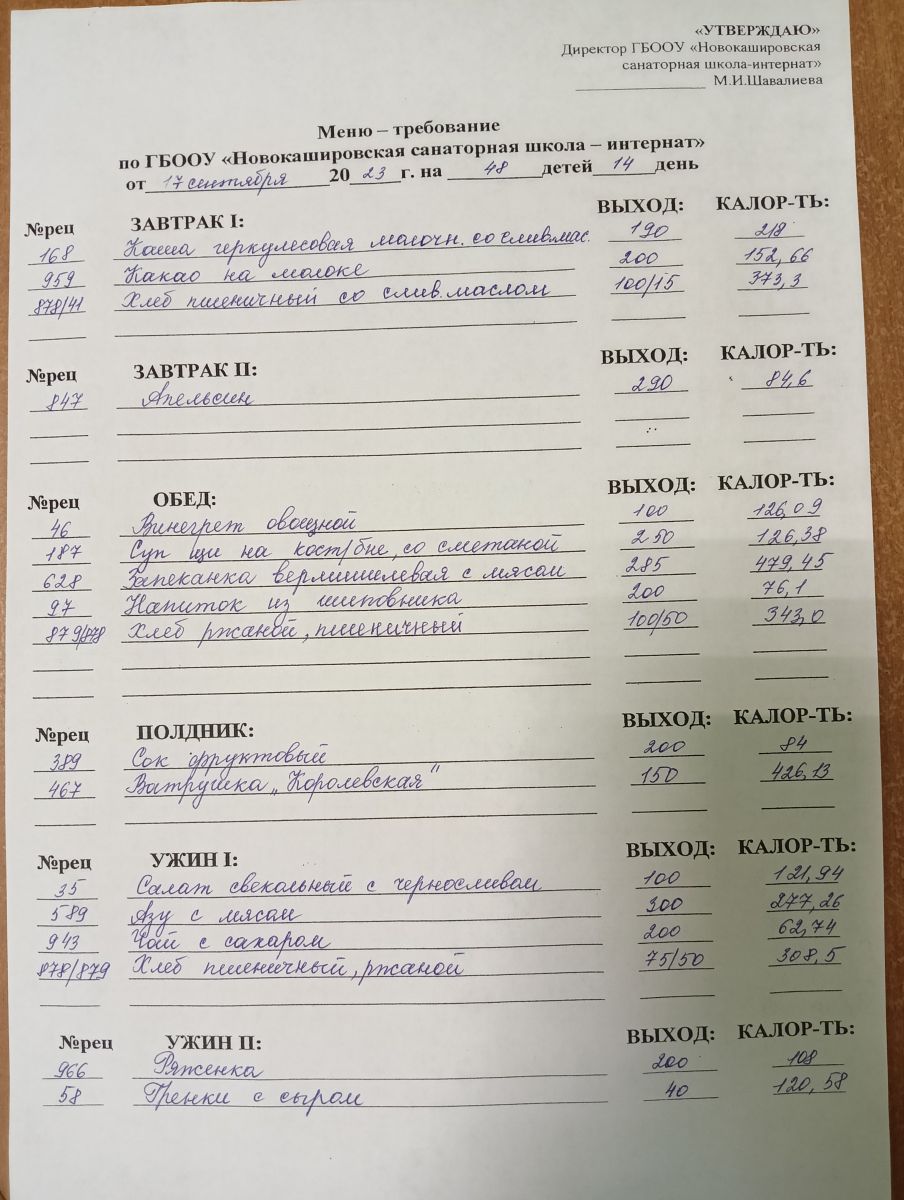 «УТВЕРЖДАЮ»
Директор ГБООУ «Новокашировская
санаторная школа-интернат»
________________ М.И.Шавалиева
Меню – требование
по ГБООУ «Новокашировская санаторная школа – интернат»
от 17 сентября 2023 г. на 48 детей 14 день
№рец ЗАВТРАК I: ВЫХОД: КАЛОР-ТЬ:
168 Каша геркулесовая молочн. со слив.мас. 190 218
959 Какао на молоке 200 152,66
878/41 Хлеб пшеничный со слив.маслом 100/15 373,3
№рец ЗАВТРАК II: ВЫХОД: КАЛОР-ТЬ:
847 Апельсин 290 84,6
№рец ОБЕД: ВЫХОД: КАЛОР-ТЬ:
46 Винегрет овощной 100 126,09
187 Суп щи на кост/бне, со сметаной 250 126,38
628 Запеканка вермишелевая с мясом 285 479,45
97 Напиток из шиповника 200 76,1
879/878 Хлеб ржаной, пшеничный 100/50 343,0
№рец ПОЛДНИК: ВЫХОД: КАЛОР-ТЬ:
389 Сок фруктовый 200 84
467 Ватрушка „Королевская" 150 426,13
№рец УЖИН I: ВЫХОД: КАЛОР-ТЬ:
35 Салат свекольный с черносливом 100 121,94
589 Азу с мясом 300 277,26
943 Чай с сахаром 200 62,74
878/879 Хлеб пшеничный, ржаной 75/50 308,5
№рец УЖИН II: ВЫХОД: КАЛОР-ТЬ:
966 Ряженка 200 108
58 Гренки с сыром 40 120,58